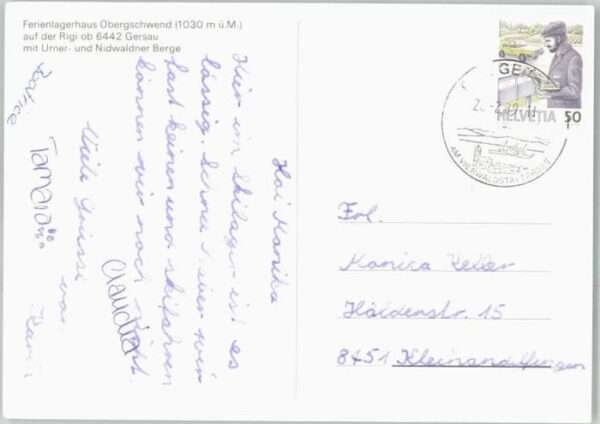 Ferienlagerhaus Obergschwend (1030 m ü.M.)
auf der Rigi ob 6442 Gersau
mit Urner- und Nidwaldner Berge
Hoi Monika
Hier im Skilager ist es
lässig. Schnee haben wir
fast keinen und skifahren
können wir noch nicht.
Viele Grüsse von
Claudia
Tamara
Beatrice
Karin
GERSAU
AM VIERWALDSTÄTTERSEE
HELVETIA 50
Frl.
Monica Keller
Haldenstr. 15
8451 Kleinandelfingen